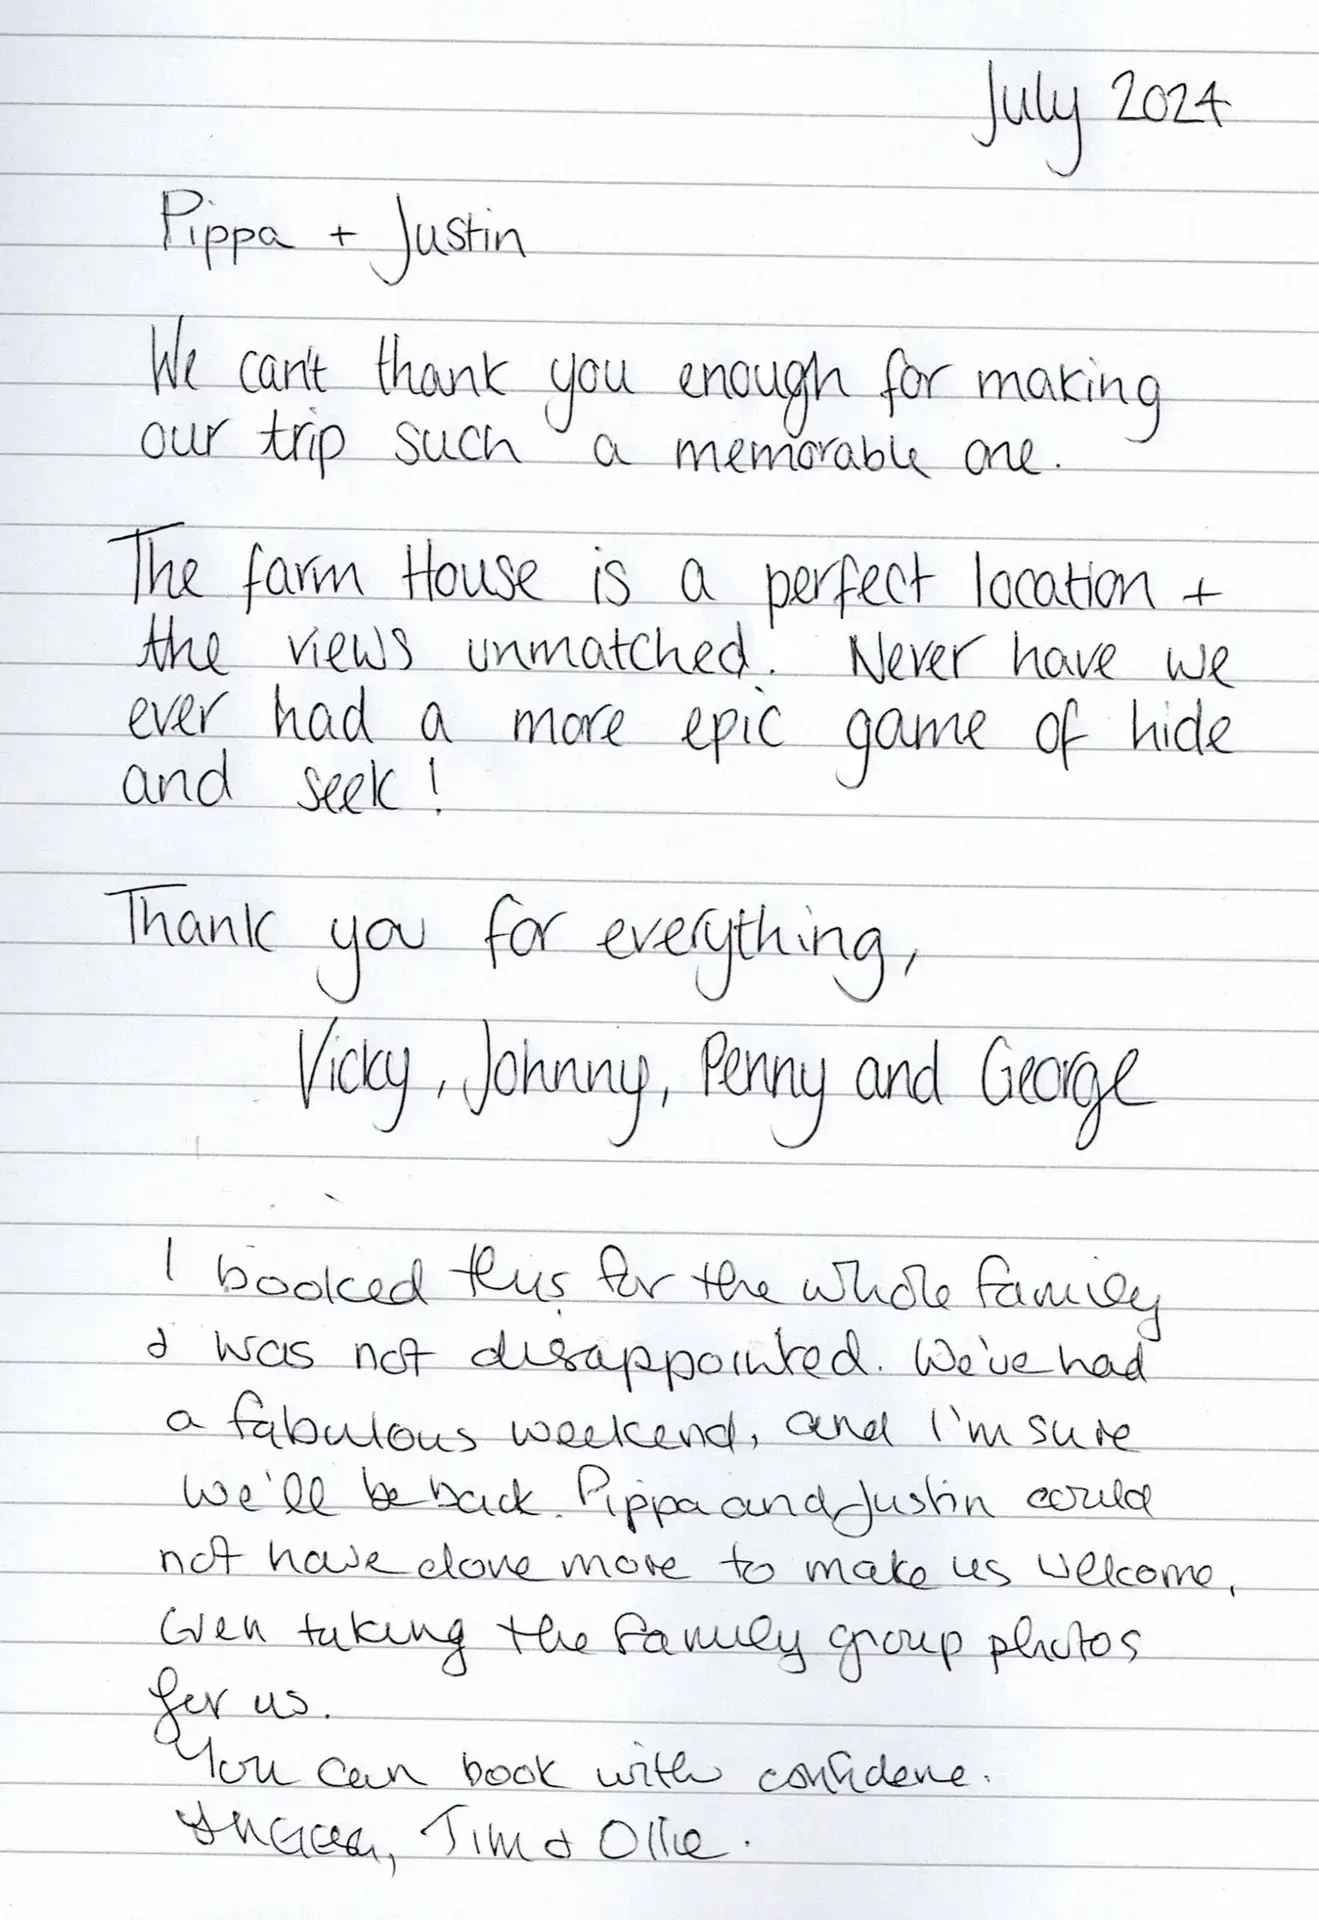 July 2024
Pippa + Justin
We can't thank you enough for making
our trip such a memorable one.
The farm House is a perfect location +
the views unmatched. Never have we
ever had a more epic game of hide
and seek!
Thank you for everything,
Vicky, Johnny, Penny and George
I booked this for the whole family
& was not disappointed. We've had
a fabulous weekend, and I'm sure
we'll be back. Pippa and Justin could
not have done more to make us welcome,
Even taking the family group photos
for us.
You can book with confidene.
Tim & Ollie.